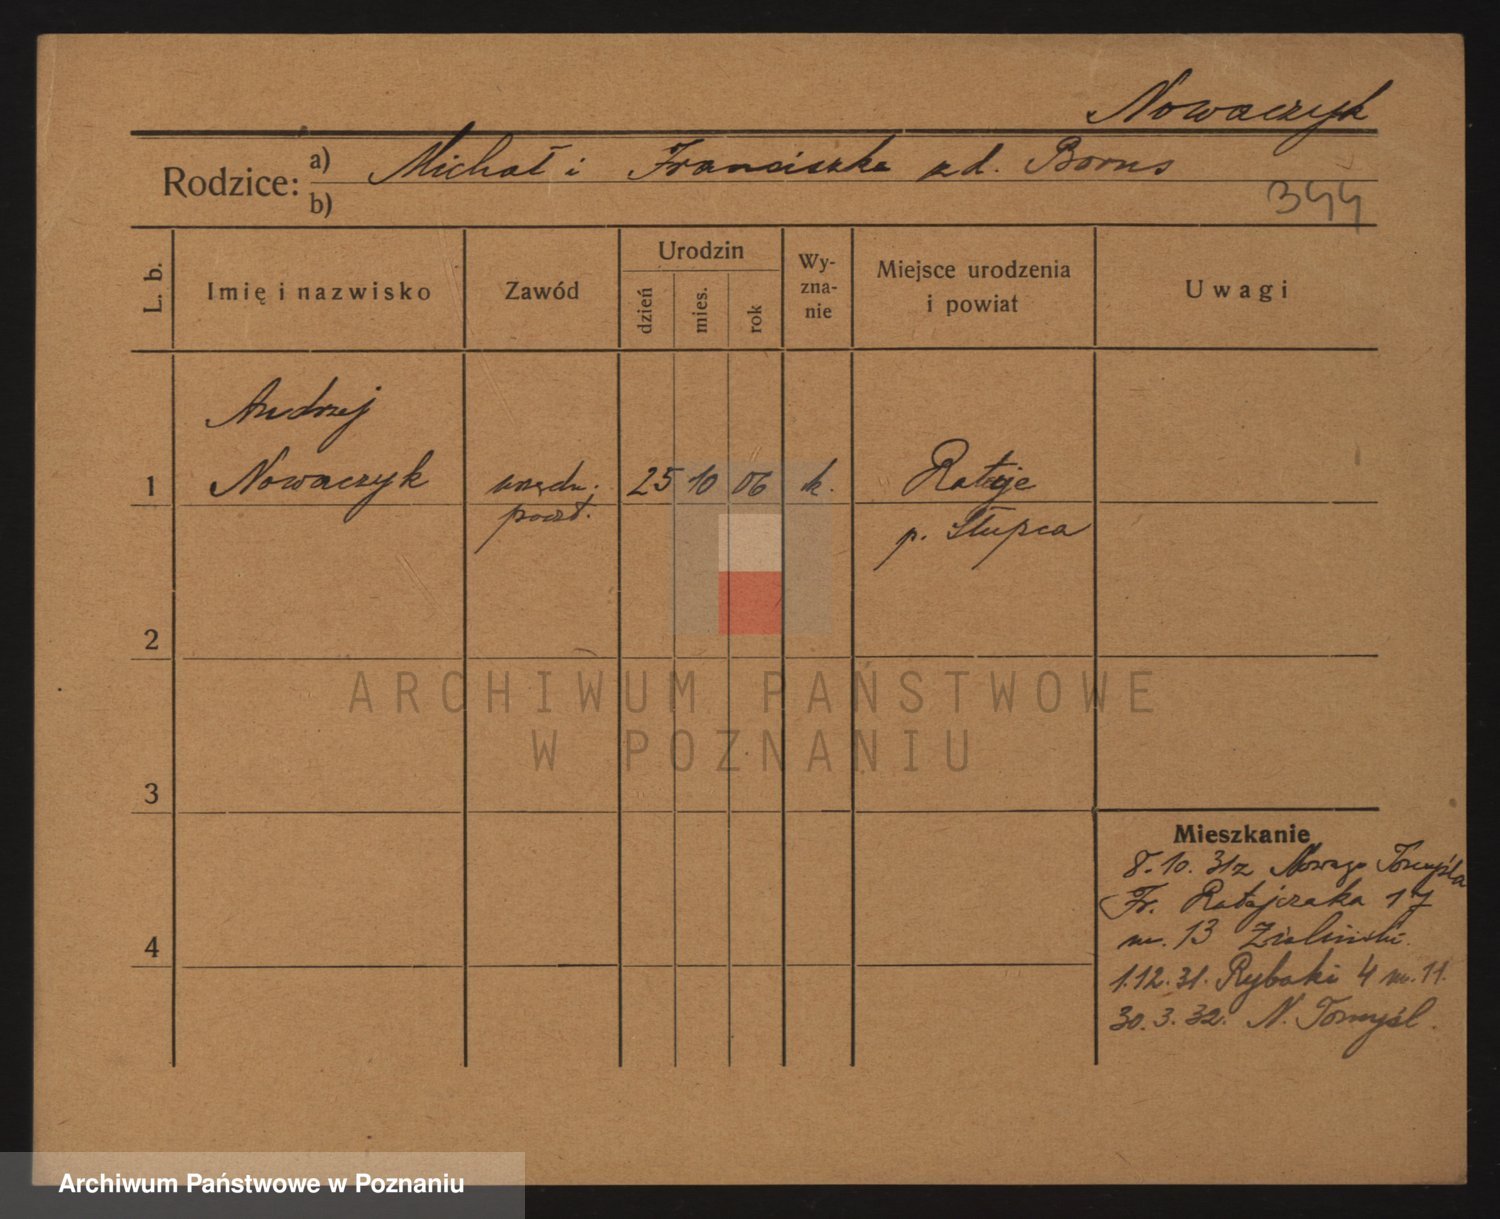 Nowaczyk
Rodzice: a) Michał i Franciszka zd. Borus
b)
344
L. b.
Imię i nazwisko
Zawód
Urodzin
dzień
mies.
rok
Wy-
zna-
nie
Miejsce urodzenia
i powiat
Uwagi
Andrzej
1 Nowaczyk urzędn. 25 10 06 k. Rataje
poczt. p. Słupca
2
3
4
Mieszkanie
8.10.31 z Nowego Tomyśla
Fr. Ratajczaka 17
m. 13 Zieliński.
1.12.31. Rybaki 4 m. 11.
30.3.32. N. Tomyśl.
ARCHIWUM PAŃSTWOWE
W POZNANIU
Archiwum Państwowe w Poznaniu